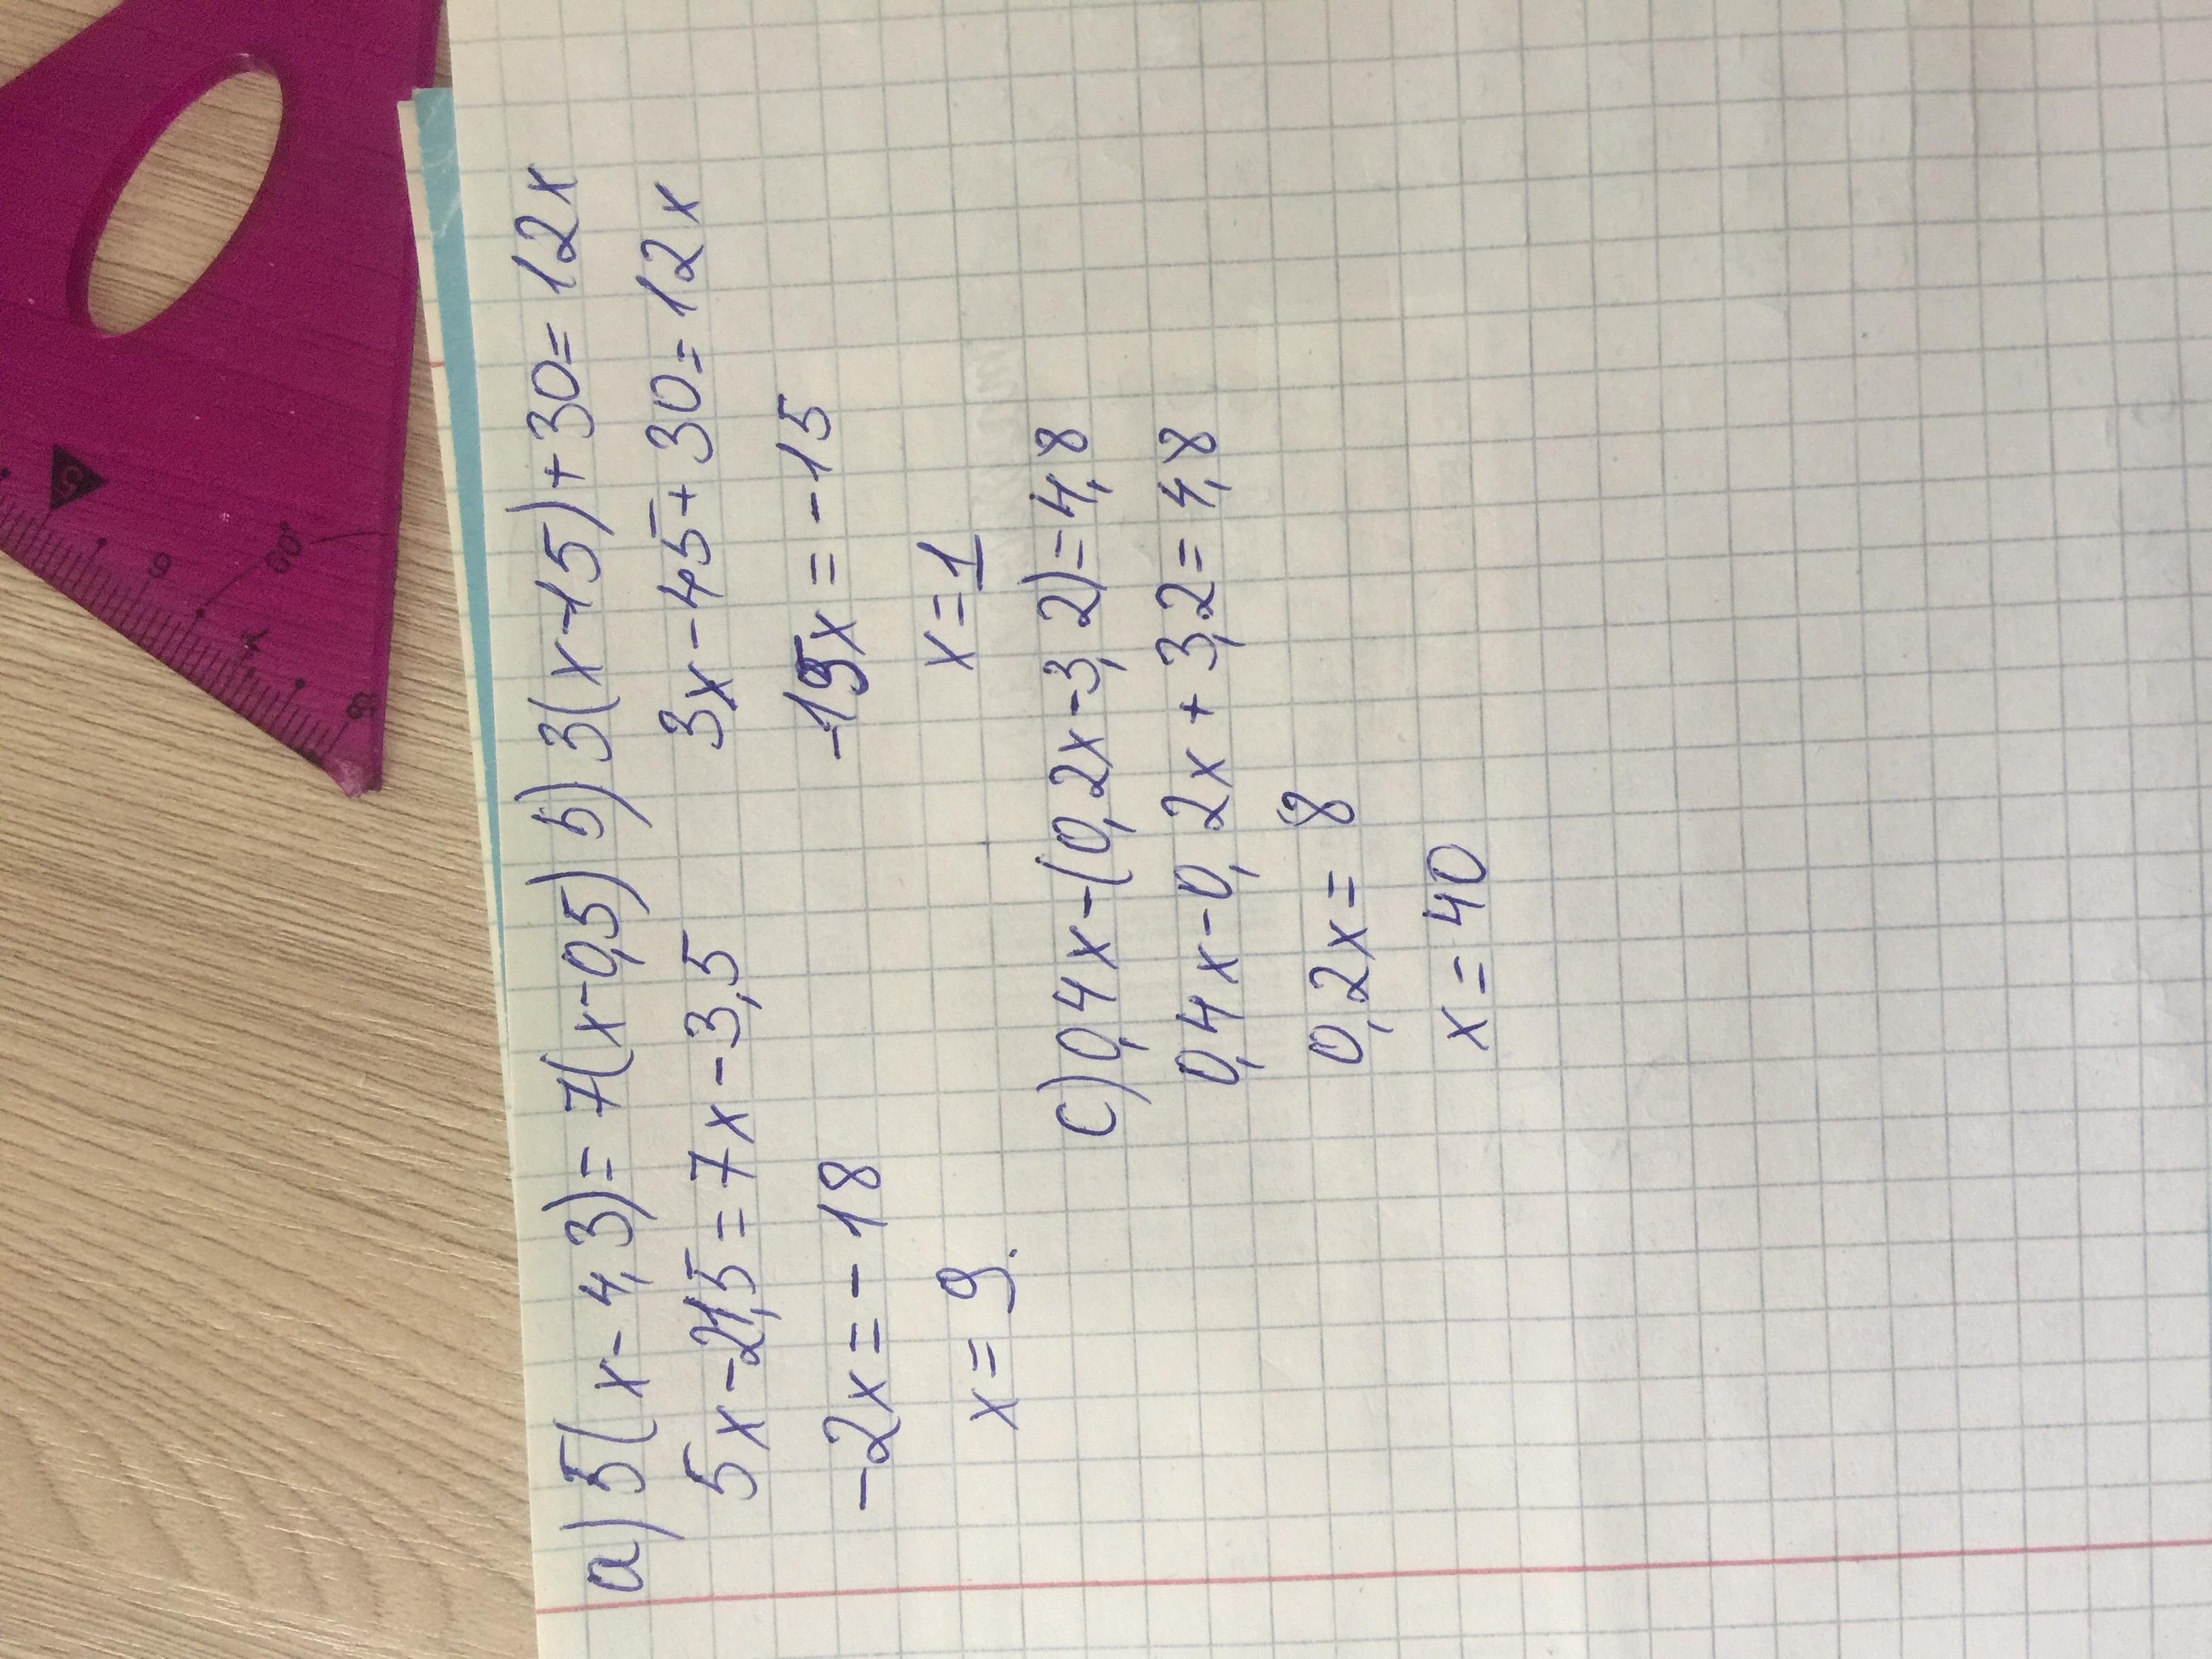 a) 5(x-4,3)=7(x-0,5)
5x-21,5=7x-3,5
-2x=-18
x=9.
b) 3(x-15)+30=12x
3x-45+30=12x
-15x=-15
x=1
c) 0,4x-(0,2x-3,2)=4,8
0,4x-0,2x+3,2=4,8
0,2x=8
x=40
5
6
7
8
60°